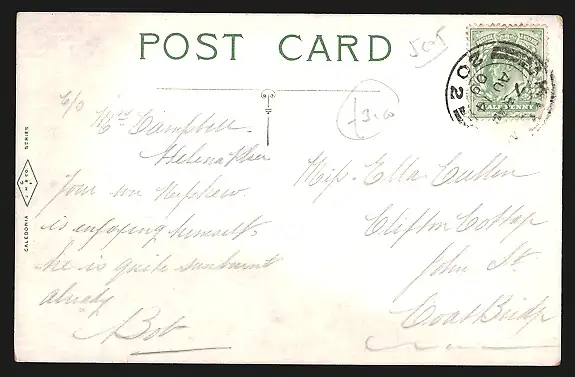 POST CARD
5cor
£3.00
HALFPENNY
AU 14
09
CALEDONIA SERIES
C/o
Mrs Campbell.
Helena Place
Your wee Nephew
is enjoying himself.
he is quite sunburnt
already
Bob
Miss Ella Cullen
Clifton Cottage
John St.
Coatbridge